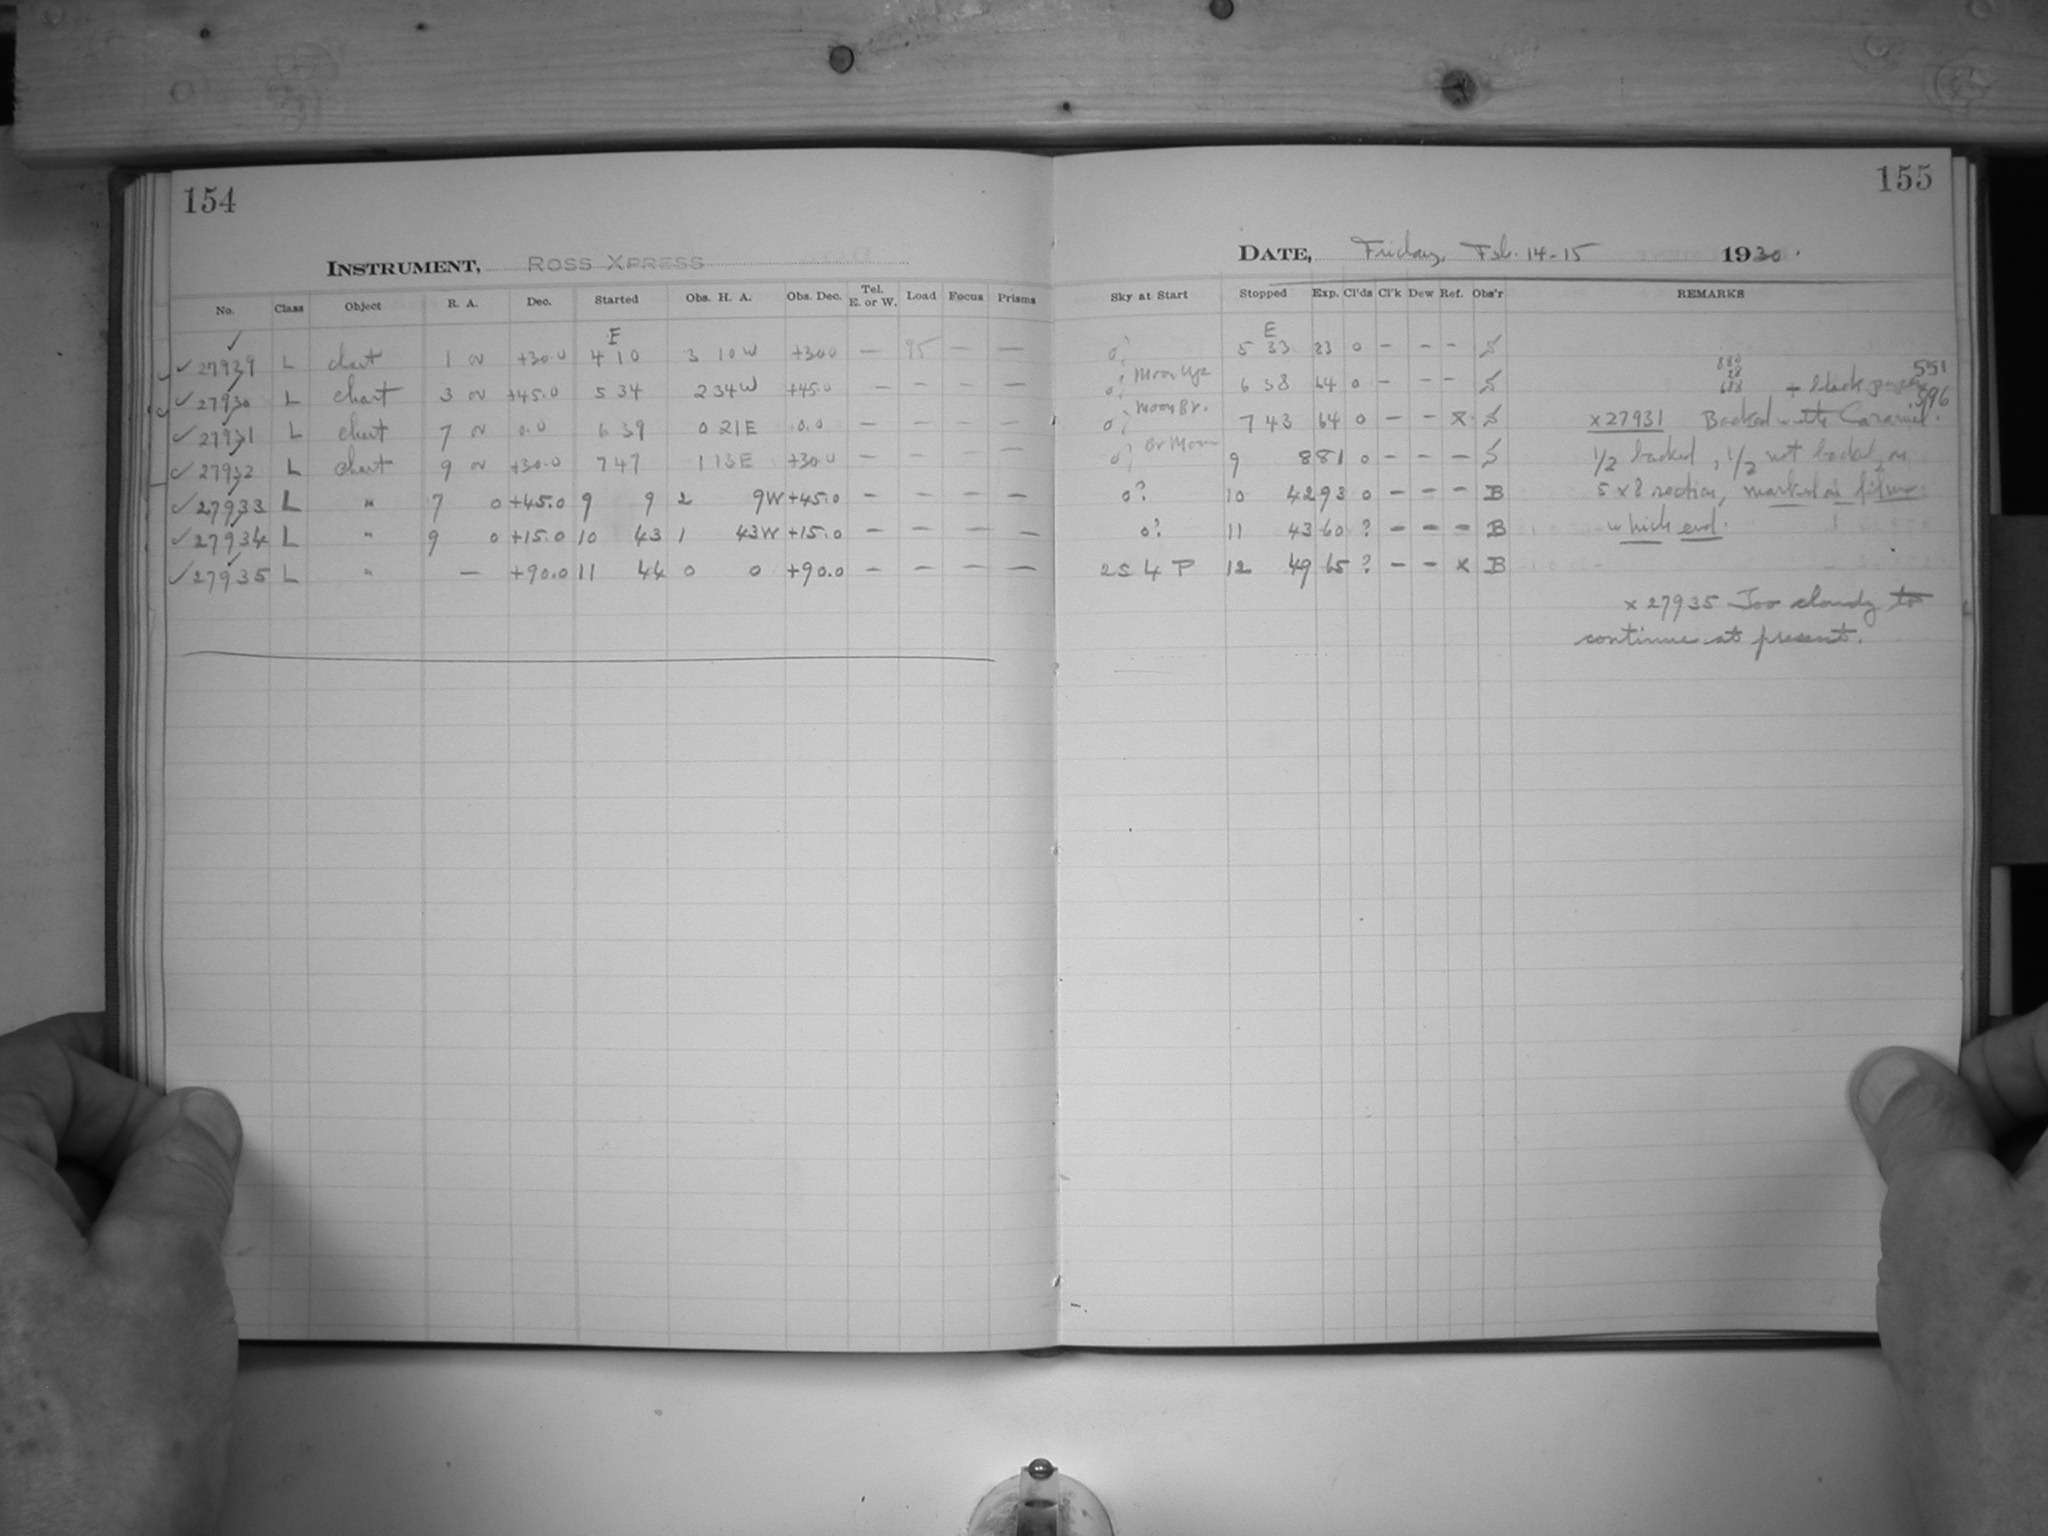 154
155
INSTRUMENT, ROSS XPRESS
DATE, Friday, Feb. 14-15 1930.
No. Class Object R. A. Dec. Started Obs. H. A. Obs. Dec. Tel. E. or W. Load Focus Prisms Sky at Start Stopped Exp. Cl'ds Cl'k Dew Ref. Obs'r REMARKS
E E
27929 L chart 1 0 +30.0 4 10 3 10W +30.0 — 95 — — 5 33 83 0 - - - S
27930 L chart 3 0 +45.0 5 34 2 34W +45.0 — — — — Moon Up 6 38 64 0 - - - S
27931 L chart 7 0 0.0 6 39 0 21E 0.0 — — — — Moon Br. 7 43 64 0 - - x S x27931 Backed with Caramel.
27932 L chart 9 0 +30.0 7 47 1 13E +30.0 — — — — Br Moon 9 8 81 0 - - - S 1/2 backed, 1/2 not backed, on
27933 L " 7 0 +45.0 9 9 2 9W +45.0 — — — — 0? 10 42 93 0 - - - B 5 x 8 section, marked as
27934 L " 9 0 +15.0 10 43 1 43W +15.0 — — — 0? 11 43 60 ? - - - B which end.
27935 L " — +90.0 11 44 0 0 +90.0 — — — — 2S 4 P 12 49 65 ? - - x B
x 27935 Too cloudy to
continue at present.